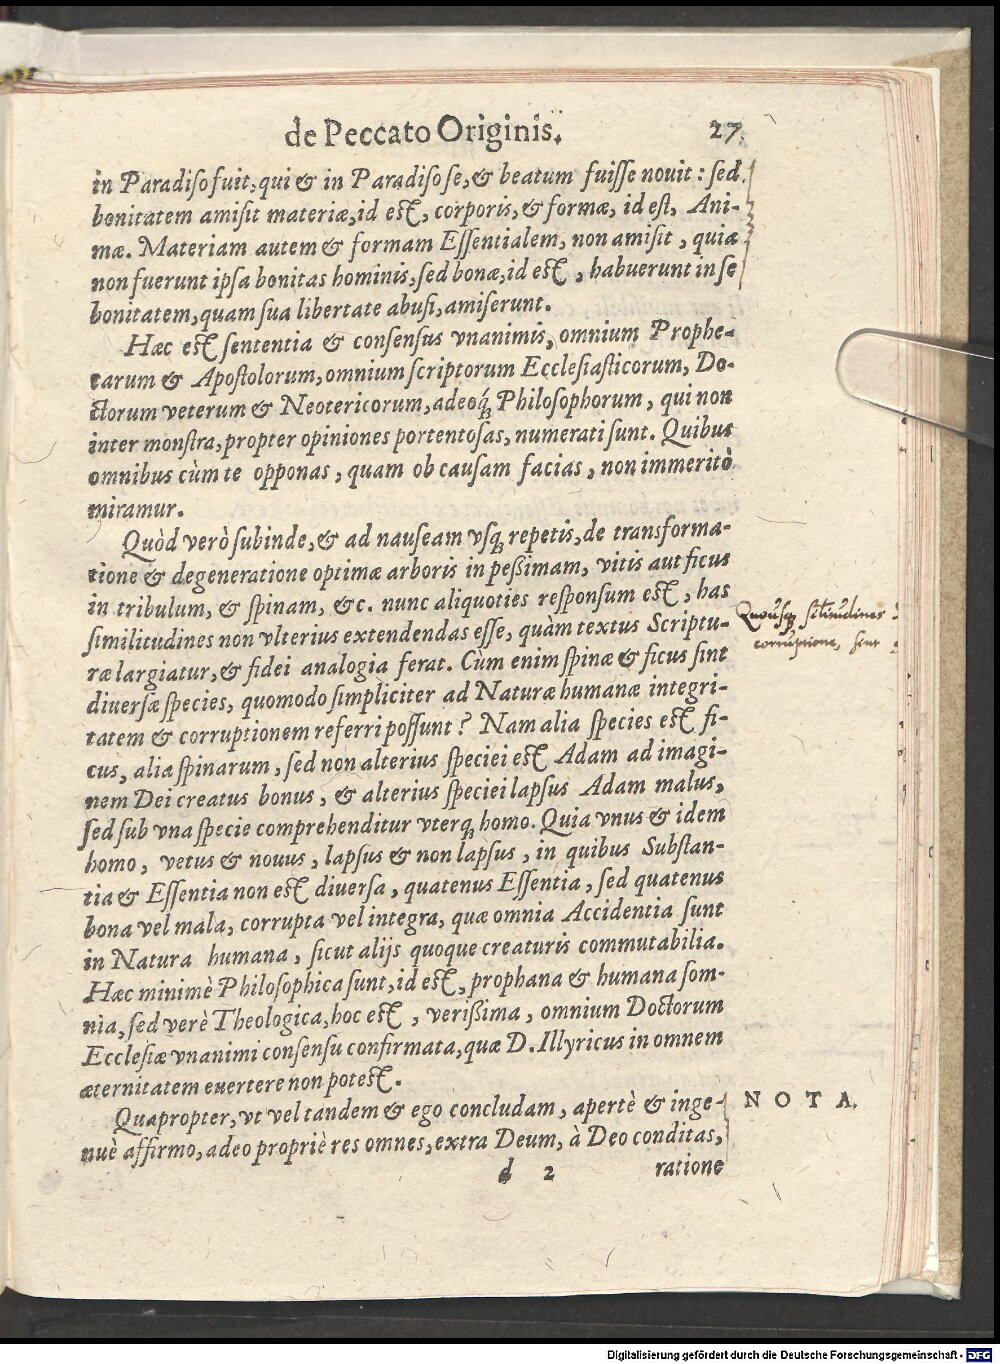 de Peccato Originis. 27.
in Paradiſo fuit, qui & in Paradiſo ſe, & beatum fuiſſe nouit: ſed
bonitatem amiſit materiæ, id eſt, corporis, & formæ, id eſt, Ani-
mæ. Materiam autem & formam Eſſentialem, non amiſit, quia
non fuerunt ipſa bonitas hominis, ſed bonæ, id eſt, habuerunt in ſe
bonitatem, quam ſua libertate abuſi, amiſerunt.
Hæc eſt ſententia & conſenſus vnanimis, omnium Prophe-
tarum & Apoſtolorum, omnium ſcriptorum Eccleſiaſticorum, Do-
ctorum veterum & Neotericorum, adeoq́ꝫ Philoſophorum, qui non
inter monſtra, propter opiniones portentoſas, numerati ſunt. Quibus
omnibus cùm te opponas, quam ob cauſam facias, non immeritò
miramur.
Quòd verò ſubinde, & ad nauſeam vſqꝫ repetis, de transforma-
tione & degeneratione optimæ arboris in peßimam, vitis aut ficus
in tribulum, & ſpinam, &c. nunc aliquoties reſponſum eſt, has
ſimilitudines non vlterius extendendas eſſe, quàm textus Scriptu-
ræ largiatur, & fidei analogia ferat. Cùm enim ſpinæ & ficus ſint
diuerſæ ſpecies, quomodo ſimpliciter ad Naturæ humanæ integri-
tatem & corruptionem referri poſſunt? Nam alia ſpecies eſt fi-
cus, alia ſpinarum, ſed non alterius ſpeciei eſt Adam ad imagi-
nem Dei creatus bonus, & alterius ſpeciei lapſus Adam malus,
ſed ſub vna ſpecie comprehenditur vterqꝫ homo. Quia vnus & idem
homo, vetus & nouus, lapſus & non lapſus, in quibus Subſtan-
tia & Eſſentia non eſt diuerſa, quatenus Eſſentia, ſed quatenus
bona vel mala, corrupta vel integra, quæ omnia Accidentia ſunt
in Natura humana, ſicut alijs quoque creaturis commutabilia.
Hæc minimè Philoſophica ſunt, id eſt, prophana & humana ſom-
nia, ſed verè Theologica, hoc eſt, verißima, omnium Doctorum
Eccleſiæ vnanimi conſenſu confirmata, quæ D. Illyricus in omnem
æternitatem euertere non poteſt.
Quapropter, vt vel tandem & ego concludam, apertè & inge-
nuè affirmo, adeo propriè res omnes, extra Deum, à Deo conditas,
d 2 ratione
Quousqꝫ
NOTA.
Digitalisierung gefördert durch die Deutsche Forschungsgemeinschaft - DFG